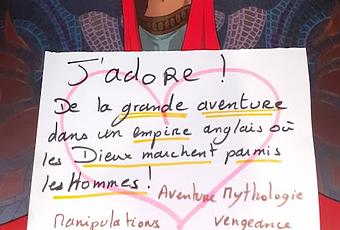 J'adore !
De la grande aventure
dans un empire anglais où
les Dieux marchent parmis
les Hommes !
Aventure Mythologie
Manipulations vengeance